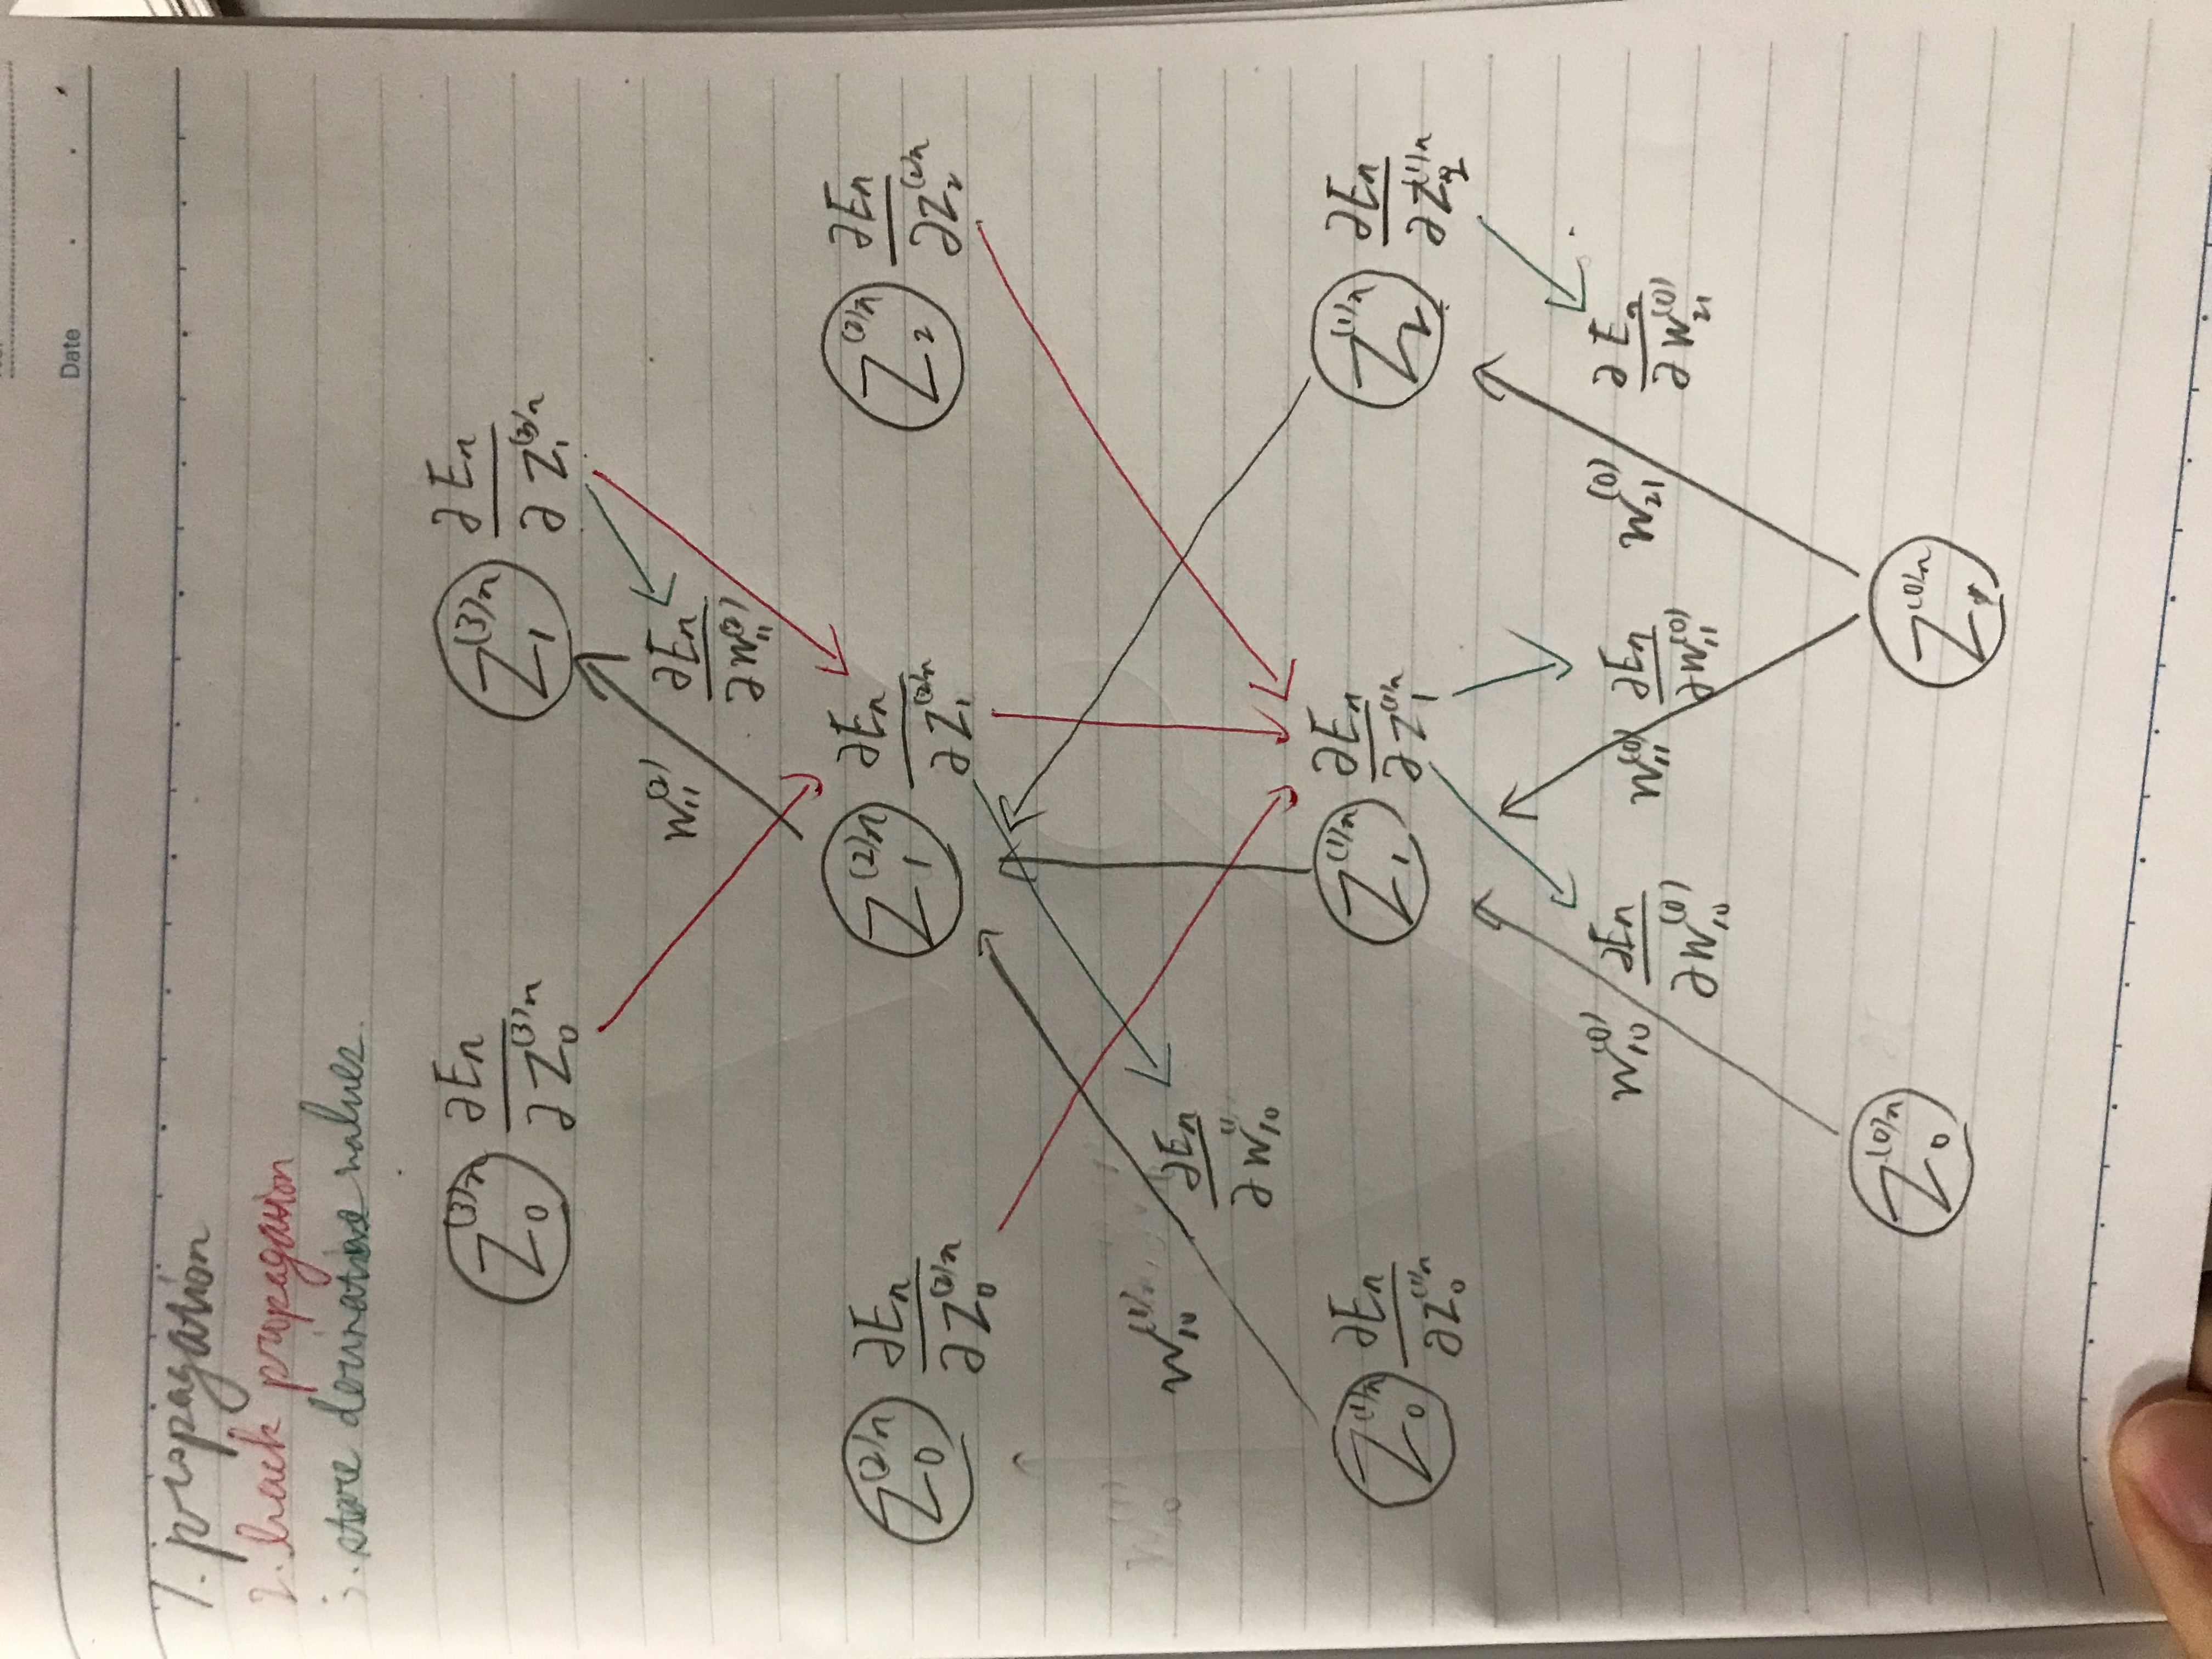 Date
1. propagation
2. back propagation
3. store derivative values.
Z₀⁽³⁾ⁿ ∂Eₙ/∂Z₀⁽³⁾ⁿ Z₁⁽³⁾ⁿ ∂Eₙ/∂Z₁⁽³⁾ⁿ
W₁₁⁽²⁾ ∂Eₙ/∂W₁₁⁽²⁾
Z₀⁽²⁾ⁿ ∂Eₙ/∂Z₀⁽²⁾ⁿ Z₁⁽²⁾ⁿ ∂Eₙ/∂Z₁⁽²⁾ⁿ Z₂⁽²⁾ⁿ ∂Eₙ/∂Z₂⁽²⁾ⁿ
W₁₀⁽¹⁾ⁿ ∂Eₙ/∂W₁₀⁽¹⁾
Z₀⁽¹⁾ⁿ ∂Eₙ/∂Z₀⁽¹⁾ⁿ Z₁⁽¹⁾ⁿ ∂Eₙ/∂Z₁⁽¹⁾ⁿ Z₂⁽¹⁾ⁿ ∂Eₙ/∂Z₂⁽¹⁾ⁿ
W₁₀⁽⁰⁾ ∂Eₙ/∂W₁₀⁽⁰⁾ W₁₁⁽⁰⁾ ∂Eₙ/∂W₁₁⁽⁰⁾ W₂₁⁽⁰⁾ ∂Eₙ/∂W₂₁⁽⁰⁾
Z₀⁽⁰⁾ⁿ Z₁⁽⁰⁾ⁿ